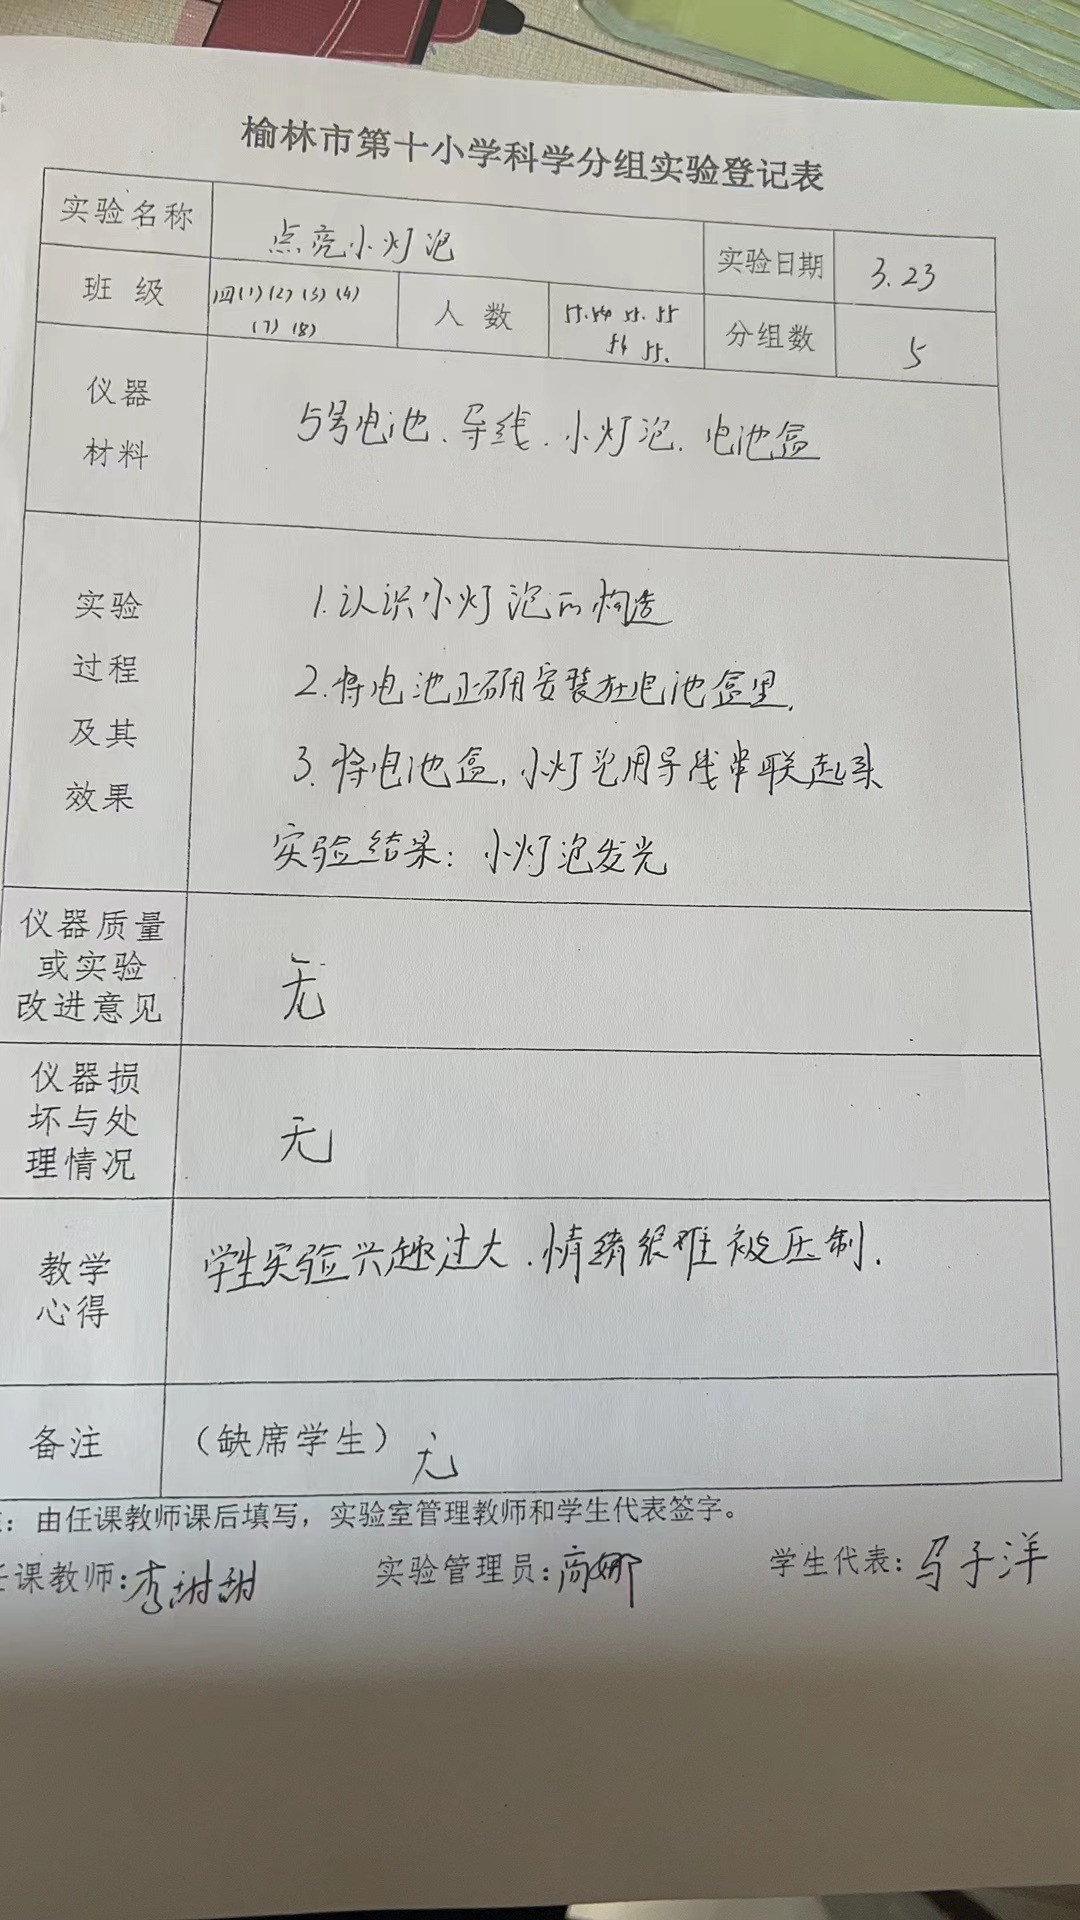 榆林市第十小学科学分组实验登记表
实验名称 点亮小灯泡 实验日期 3.23
班级 四(1)(2)(3)(4)
(7)(8)
人数 55.54 55.55
56 55.
分组数 5
仪器
材料
5号电池、导线、小灯泡、电池盒
实验
过程
及其
效果
1.认识小灯泡的构造
2.将电池正确安装在电池盒里.
3.将电池盒,小灯泡用导线串联起来
实验结果:小灯泡发光
仪器质量
或实验
改进意见
无
仪器损
坏与处
理情况
无
教学
心得
学生实验兴趣过大,情绪很难被压制.
备注 (缺席学生) 无
:由任课教师课后填写,实验室管理教师和学生代表签字。
任课教师:李甜甜 实验管理员:高娜 学生代表:马子洋